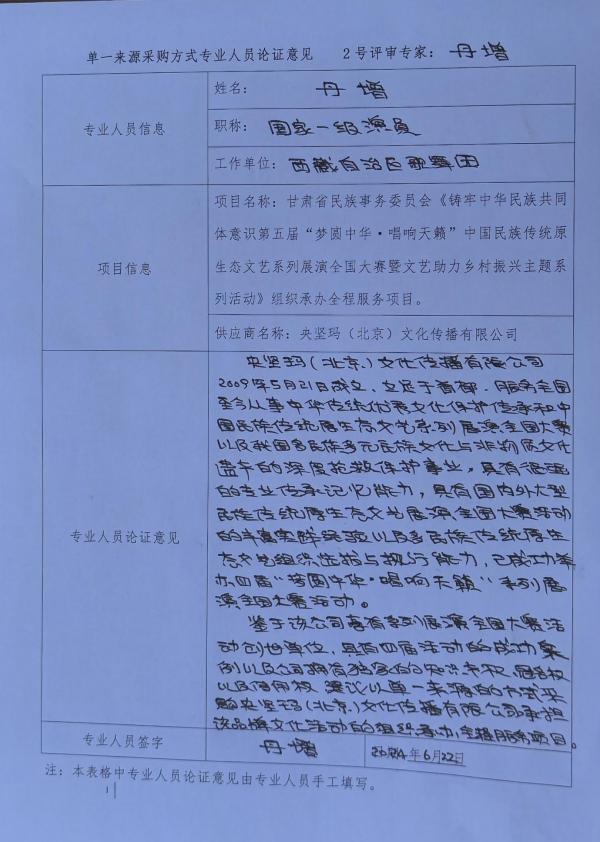 单一来源采购方式专业人员论证意见 2号评审专家：丹增
专业人员信息
姓名：丹增
职称：国家一级演员
工作单位：西藏自治区歌舞团
项目信息
项目名称：甘肃省民族事务委员会《铸牢中华民族共同
体意识第五届“梦圆中华·唱响天籁”中国民族传统原
生态文艺系列展演全国大赛暨文艺助力乡村振兴主题系
列活动》组织承办全程服务项目。
供应商名称：央坚玛（北京）文化传播有限公司
专业人员论证意见
央坚玛（北京）文化传播有限公司
2009年5月21日成立，立足于首都，服务全国
至今从事中华传统优秀文化保护传承和中
国民族传统原生态文艺系列展演全国大赛
以及我国多民族多元民族文化与非物质文化
遗产的深度抢救保护事业，具有很强
的专业传承记忆能力，具有国内外大型
民族传统原生态文艺展演全国大赛活动
的丰富实践经验以及多民族传统原生
态文艺组织选拔与执行能力，已成功举
办四届“梦圆中华·唱响天籁”系列展
演全国大赛活动。
鉴于该公司享有系列展演全国大赛活
动创始单位，具有四届活动的成功案
例以及公司拥有独家的知识产权、冠名权
以及使用权，建议以单一来源的方式采
购央坚玛（北京）文化传播有限公司承担
该品牌文化活动的组织承办全程服务项目。
专业人员签字
丹增
2024年6月22日
注：本表格中专业人员论证意见由专业人员手工填写。